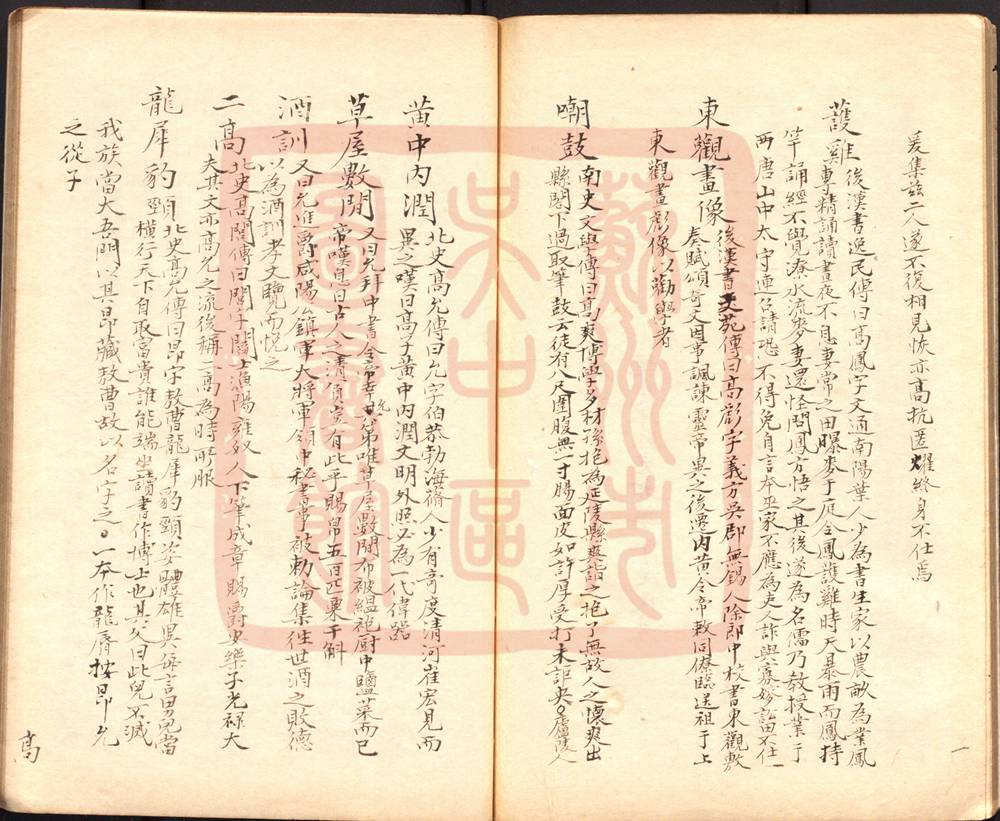 爰集茲二人遂不復相見恢亦高抗匿耀終身不仕焉
護雞 後漢書逸民傳曰高鳳字文通南陽葉人少為書生家以農畝為業鳳
專精誦讀晝夜不息妻常之田曝麥于庭令鳳護雞時天暴雨而鳳持
竿誦經不覺潦水流麥妻還怪問鳳方悟之其後遂為名儒乃教授業于
西唐山中太守連召請恐不得免自言本巫家不應為吏又詐與寡嫂訟田不仕
東觀畫像 後漢書文苑傳曰高彪字義方吳郡無錫人除郎中校書東觀數
奏賦頌奇文因事諷諫靈帝異之後遷內黃令帝敕同僚臨送祖于上
東觀畫彪像以勸學者
嘲鼓 南史文學傳曰高爽博學多材孫抱為延陵縣爽詣之抱了無故人之懷爽出
縣閣下過取筆鼓云徒有八尺圍腹無寸腸面皮如許厚受打未詎央 廬陵人
黃中內潤 北史高允傳曰允字伯恭勃海蓨人少有奇度清河崔宏見而
異之嘆曰高子黃中內潤文明外照必為一代偉器
草屋數間 又曰允拜中書令帝幸允第唯草屋數間布被縕袍廚中鹽菜而已
帝嘆息曰古人之清貧豈有此乎賜帛五百匹粟千斛
酒訓 又曰允進爵咸陽公鎮軍大將軍領中秘書事被勅論集往世酒之敗德
以為酒訓孝文覽而悅之
二高 北史高閭傳曰閭字閻士漁陽雍奴人下筆成章賜爵安樂子光祿大
夫其文亦高允之流後稱二高為時所服
龍犀豹頸 北史高允傳曰昂字敖曹龍犀豹頸姿體雄異每言男兒當
橫行天下自取富貴誰能端坐讀書作博士也其父曰此兒不滅
我族當大吾門以其昂藏敖曹故以名字之 一本作龍脣按昂允
之從子
高
一
蘇州市
吳中區
圖書館